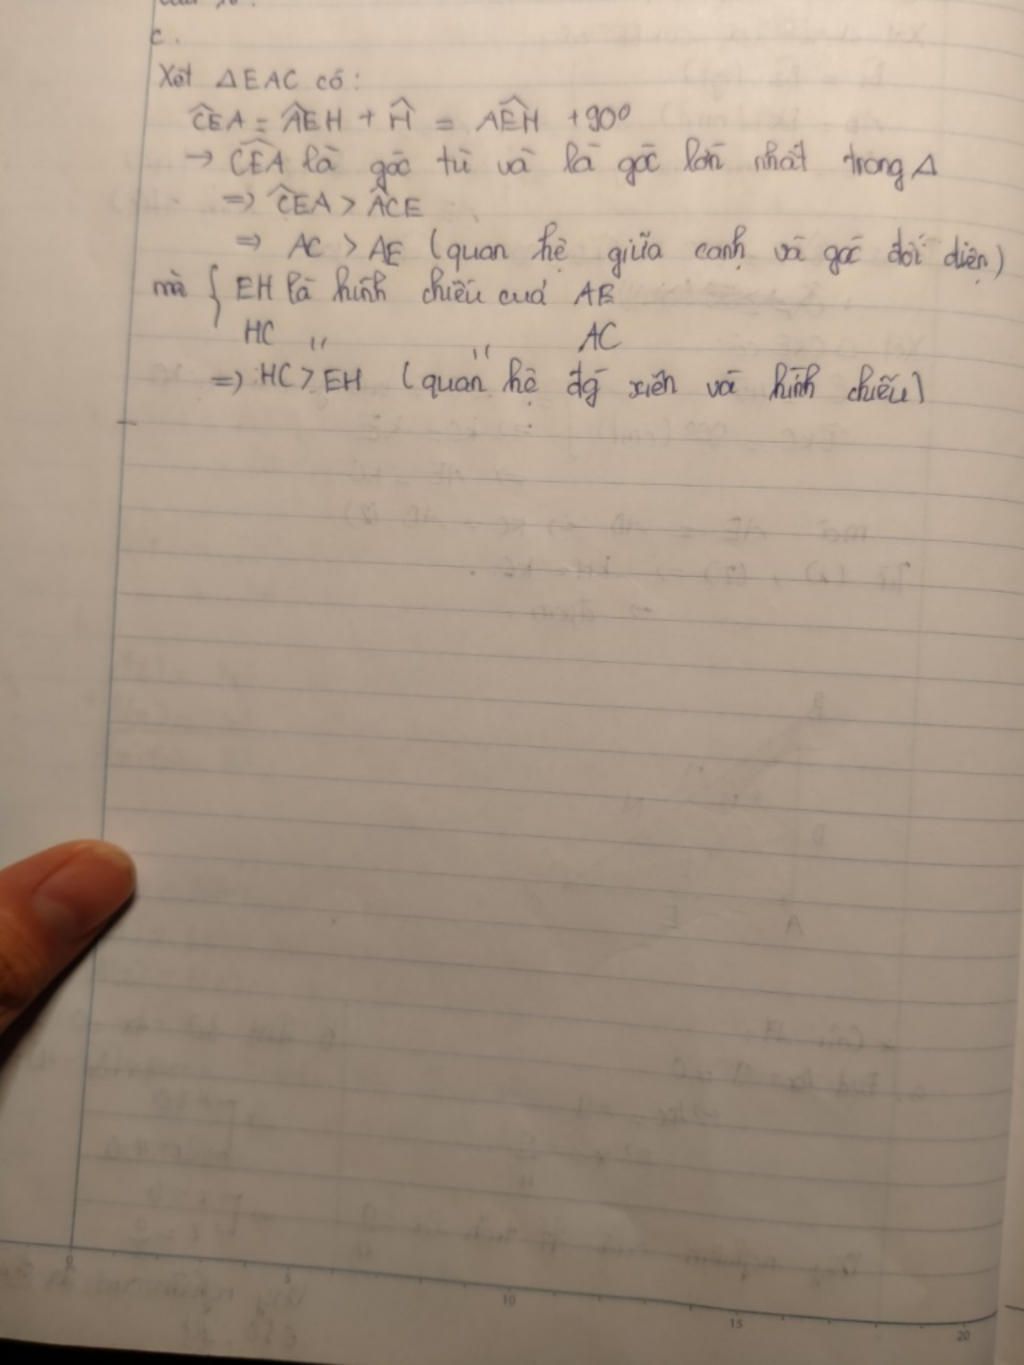 c.
Xét ΔEAC có:
ĈEA = ÂEH + Ĥ = AÊH + 90°
→ CÊA là góc tù và là góc lớn nhất trong Δ
=> ĈEA > ÂCE
=> AC > AE (quan hệ giữa cạnh và góc đối diện)
mà { EH là hình chiếu cuả AE
HC " " AC
=> HC > EH (quan hệ đg xiên và hình chiếu)
0 5 10 15 20